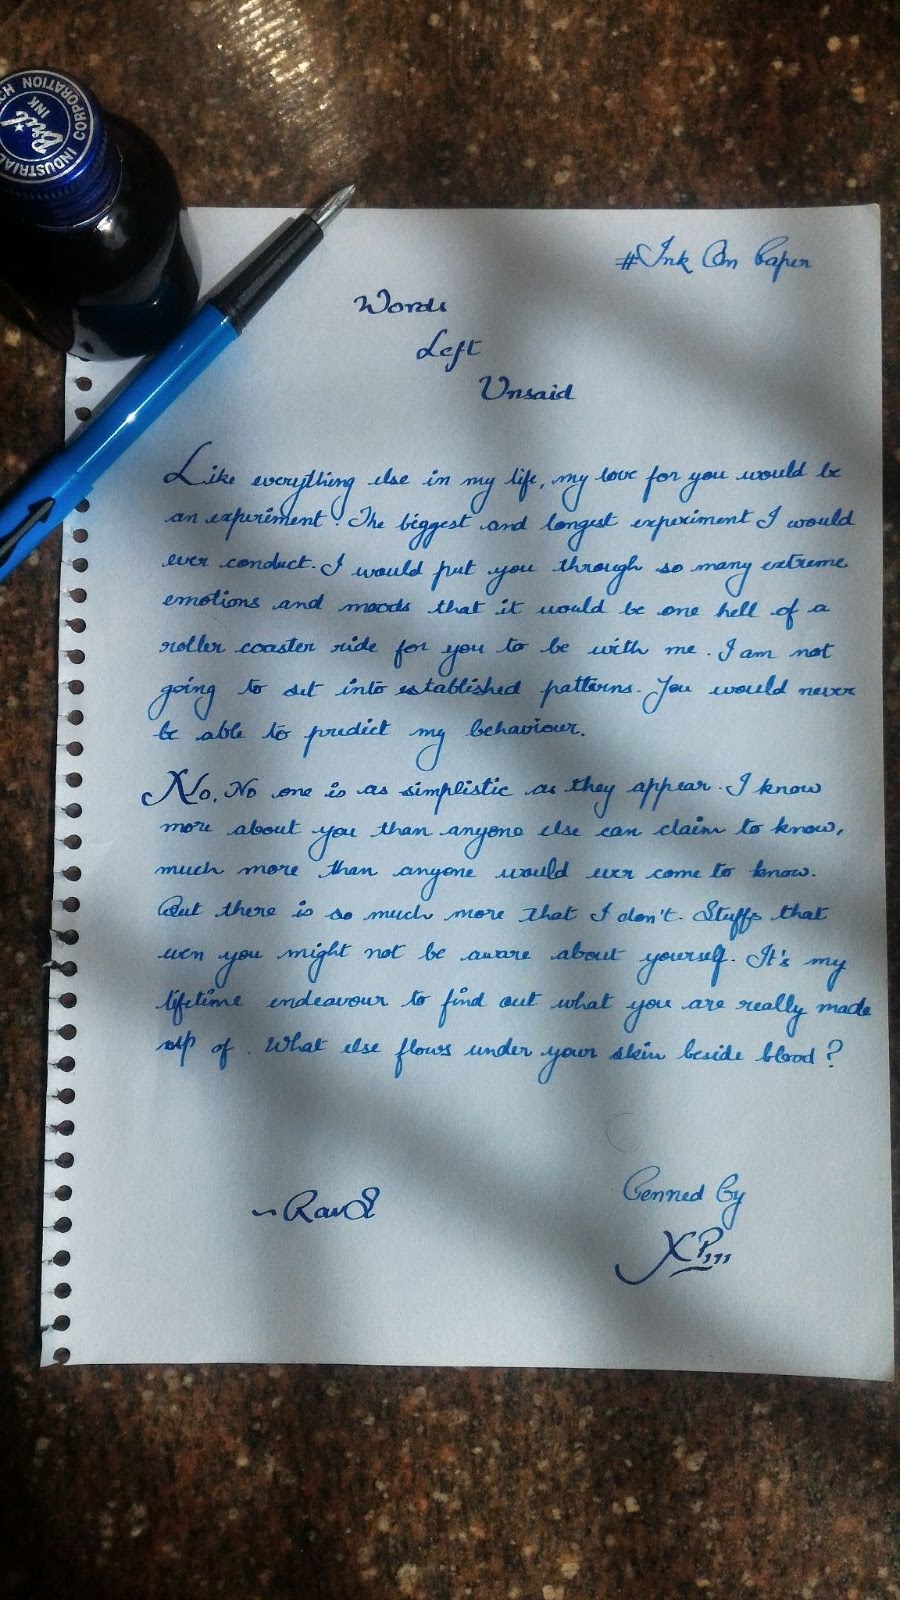 INDUSTRIAL CORPORATION
Bril
INK
#Ink On Paper
Words
Left
Unsaid
Like everything else in my life, my love for you would be
an experiment. The biggest and longest experiment I would
ever conduct. I would put you through so many extreme
emotions and moods that it would be one hell of a
roller coaster ride for you to be with me. I am not
going to set into established patterns. You would never
be able to predict my behaviour.
No, No one is as simplistic as they appear. I know
more about you than anyone else can claim to know,
much more than anyone would ever come to know.
But there is so much more that I don't. Stuffs that
even you might not be aware about yourself. It's my
lifetime endeavour to find out what you are really made
up of. What else flows under your skin beside blood?
Penned By